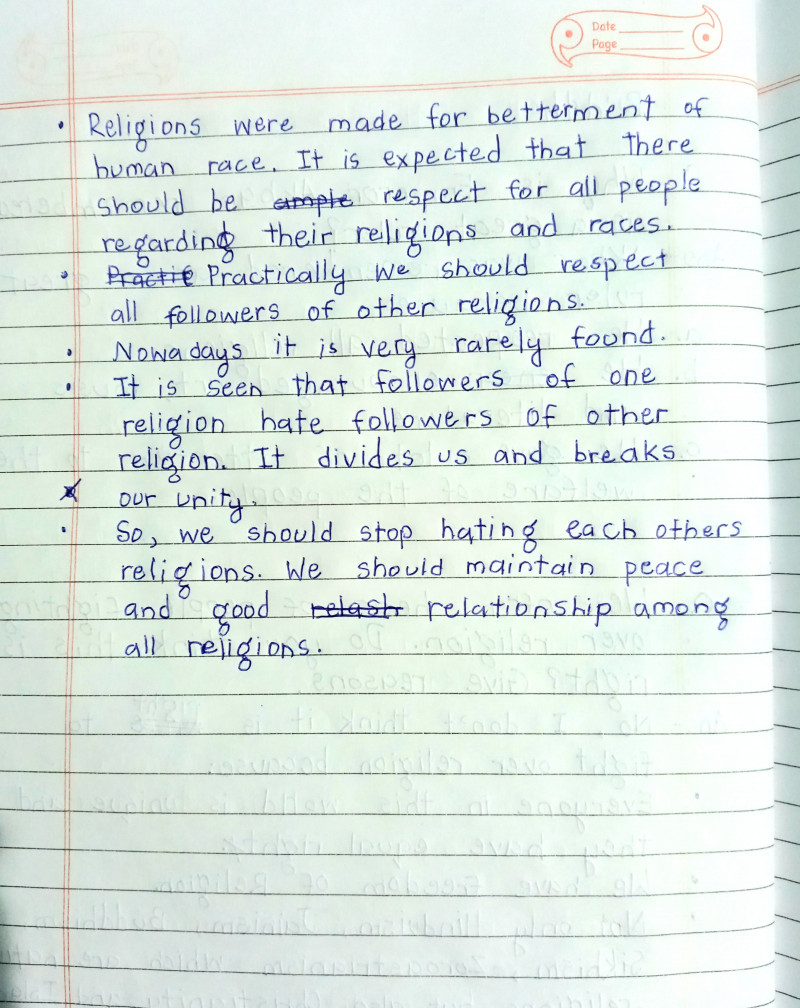 Date
Page
• Religions were made for betterment of
human race. It is expected that there
should be ample respect for all people
regarding their religions and races.
• Practie Practically we should respect
all followers of other religions.
• Nowadays it is very rarely found.
• It is seen that followers of one
religion hate followers of other
religion. It divides us and breaks
our unity.
• So, we should stop hating each others
religions. We should maintain peace
and good relash relationship among
all religions.